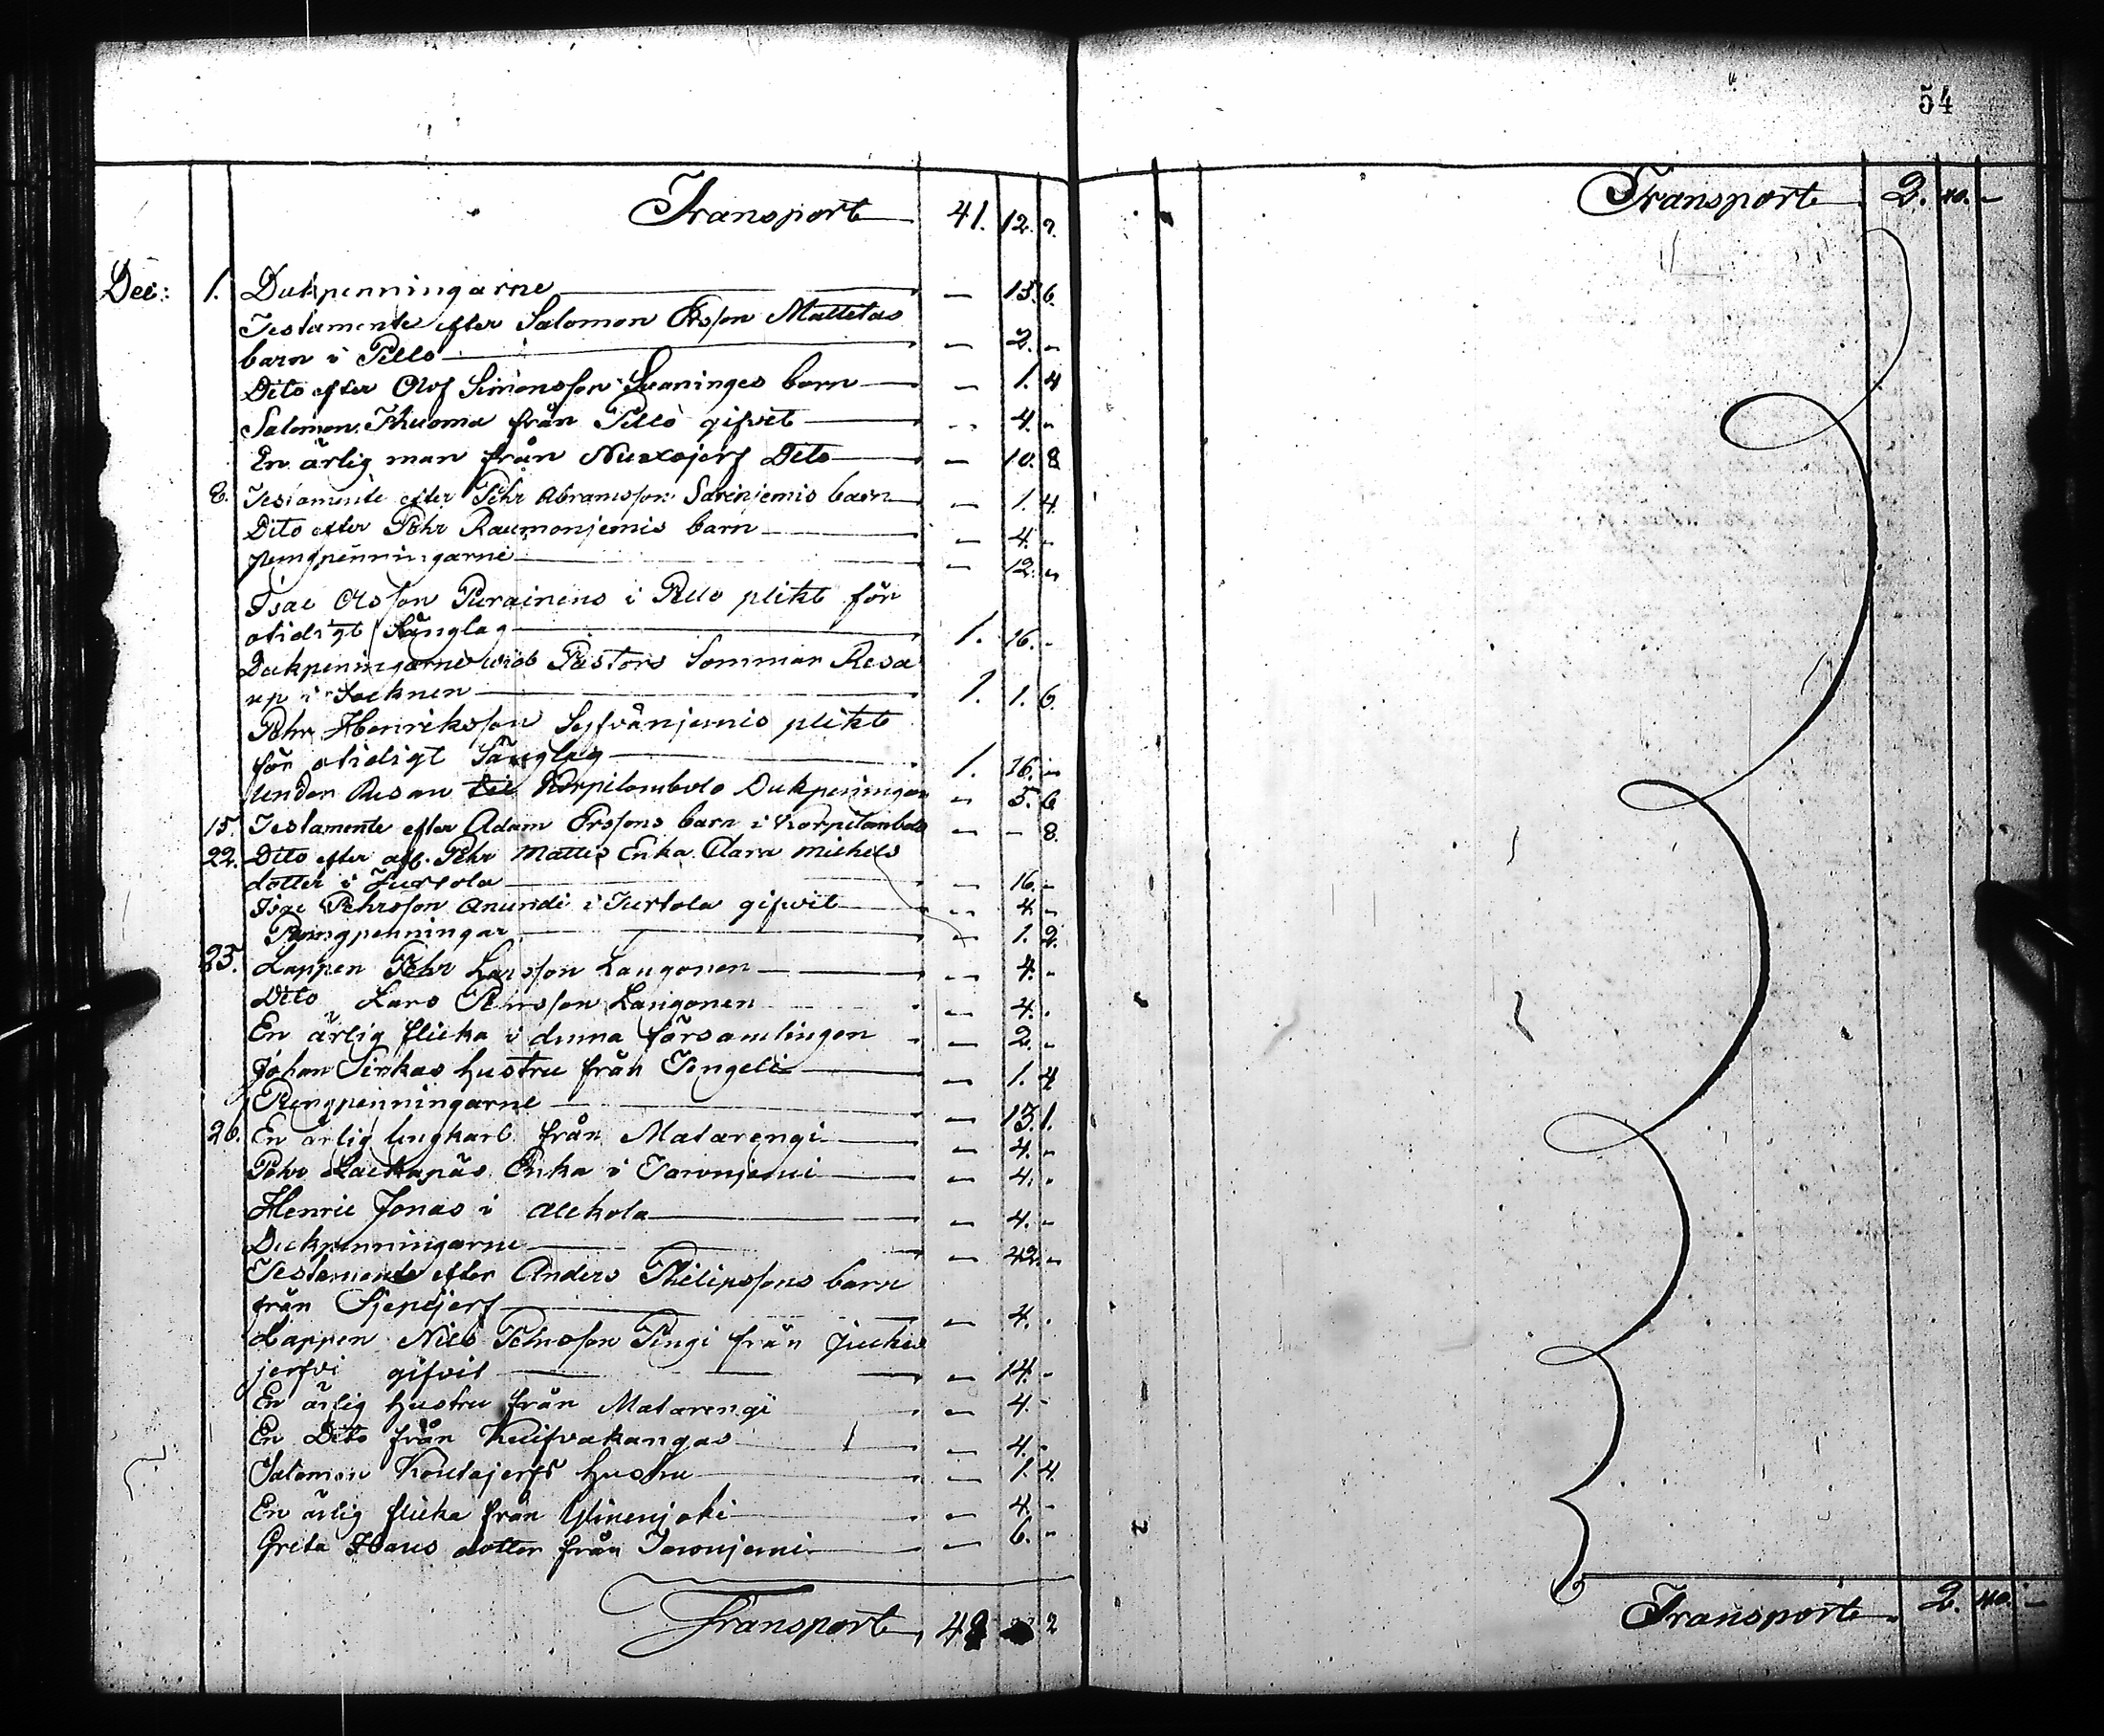 54
Transport 41. 12. 2.
Dec: 1. Dukpenningarne — 15. 6.
Testamente efter Salomon Ersson Mattetas
barn i Pello — 2. -
Dito efter Olof Simonsson Svaninges barn — 1. 4
Salomon Thuoma från Pello gifvit - 4. -
En ärlig man från Nuoxojerf Dito — 10. 8
8. Testamente efter Pehr Abramsson Sarinjemis barn — 1. 4.
Dito efter Pehr Raumonjemis barn — 4. -
Pungpenningarne — 12. -
Isac Olsson Purainens i Pello plikt för
otidigt Sänglag 1. 16. -
Dukpeningarne wid Pastors Sommar Resa
up i Socknen 1. 1. 6.
Pehr Henriksson plikt
för otidigt Sänglag 1. 16. -
under Resan til Korpilombolo Dukpeningar — 5. 6
15. Testamente efter Adam Erssons barn i Korpilombolo — — 8.
22. Dito efter afl. Pehr Mattes Enka Clara Michels
dotter i Turtola — 16. -
Isac Pehrsson Anundi i Turtola gifvit — 4. -
Pungpenningar — 1. 2.
25. Lappen Pehr Larsson Langonen — 4. -
Dito Lars Pehrsson Langonen — 4. -
En ärlig flicka i denna församlingen — 2. -
Johan Sirkas hustru från Tengeli — 1. 4
Pungpenningarne — 13. 1.
26. En ärlig ungkarl från Matarengi — 4. -
Pehr Lackapäs Enka i Toronjemi — 4. -
Henric Jonas i Alckola — 4. -
Duckpenningarne — 42. -
Testamente efter Anders Philipssons barn
från — 4. -
Lappen Nils Pehrsson Pingi från Juckas
jerfvi gifvit — 14. -
En ärlig hustru från Matarengi — 4. -
En Dito från Kuifvakangas — 4. -
Salomon Koutojerfs hustru — 1. 4.
En ärlig flicka från Ylinenjoki — 4. -
Greta Hans dotter från Toronjemi — 6. -
Transport 2
Transport 2. 40. -
Transport 2. 40. -